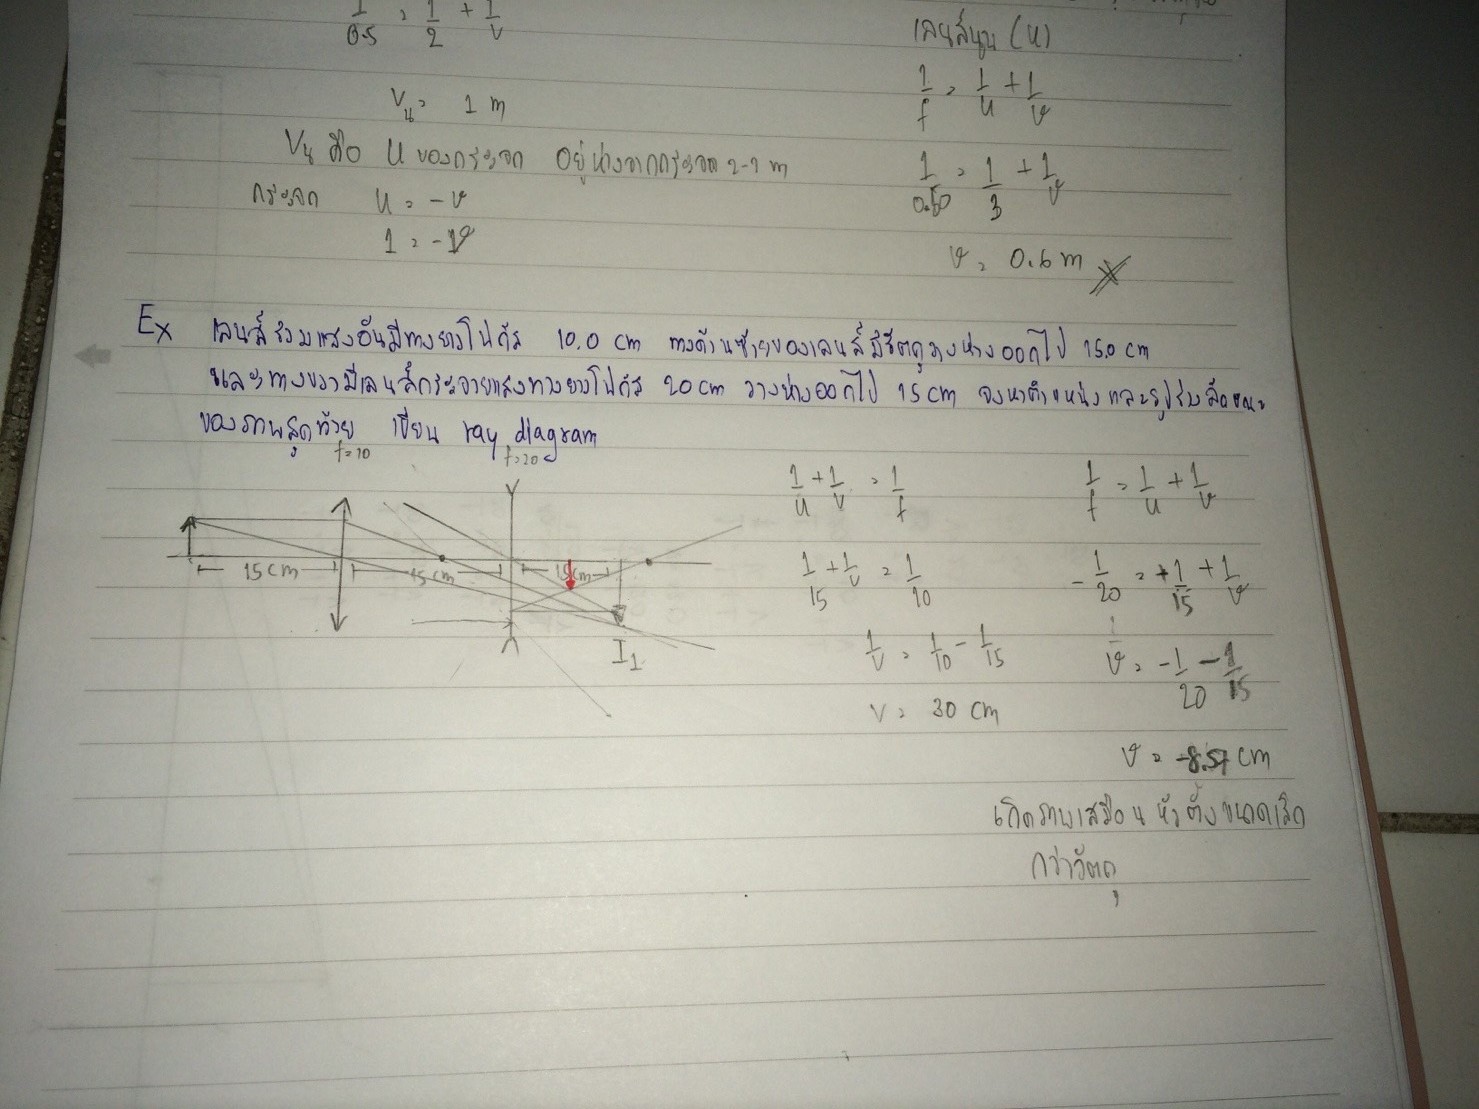 1/0.5 = 1/2 + 1/v
Vน = 1 m
Vน คือ u ของกระจก อยู่ห่างจากกระจก 2-1 m
กระจก u = -v
1 = -v
เลนส์นูน (u)
1/f = 1/u + 1/v
1/0.50 = 1/3 + 1/v
v = 0.6 m
Ex เลนส์รวมแสงอันมีทางยาวโฟกัส 10.0 cm ทางด้านซ้ายของเลนส์มีวัตถุวางห่างออกไป 15.0 cm
และทางขวามีเลนส์กระจายแสงทางยาวโฟกัส 20 cm วางห่างออกไป 15 cm จงหาตำแหน่งและรูปร่างลักษณะ
ของภาพสุดท้าย เขียน ray diagram
f=10 f=20
15 cm 15 cm 15 cm
I1
1/u + 1/v = 1/f
1/15 + 1/v = 1/10
1/v = 1/10 - 1/15
v = 30 cm
1/f = 1/u + 1/v
-1/20 = +1/15 + 1/v
1/v = -1/20 - 1/15
v = -8.57 cm
เกิดภาพเสมือน หัวตั้งขนาดเล็ก
กว่าวัตถุ